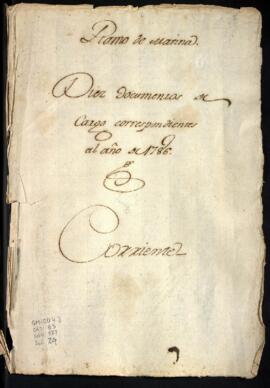 Ramo de Marina.
Diez documentos de
Cargo correspondientes
al año de 1786.
Corriente
24